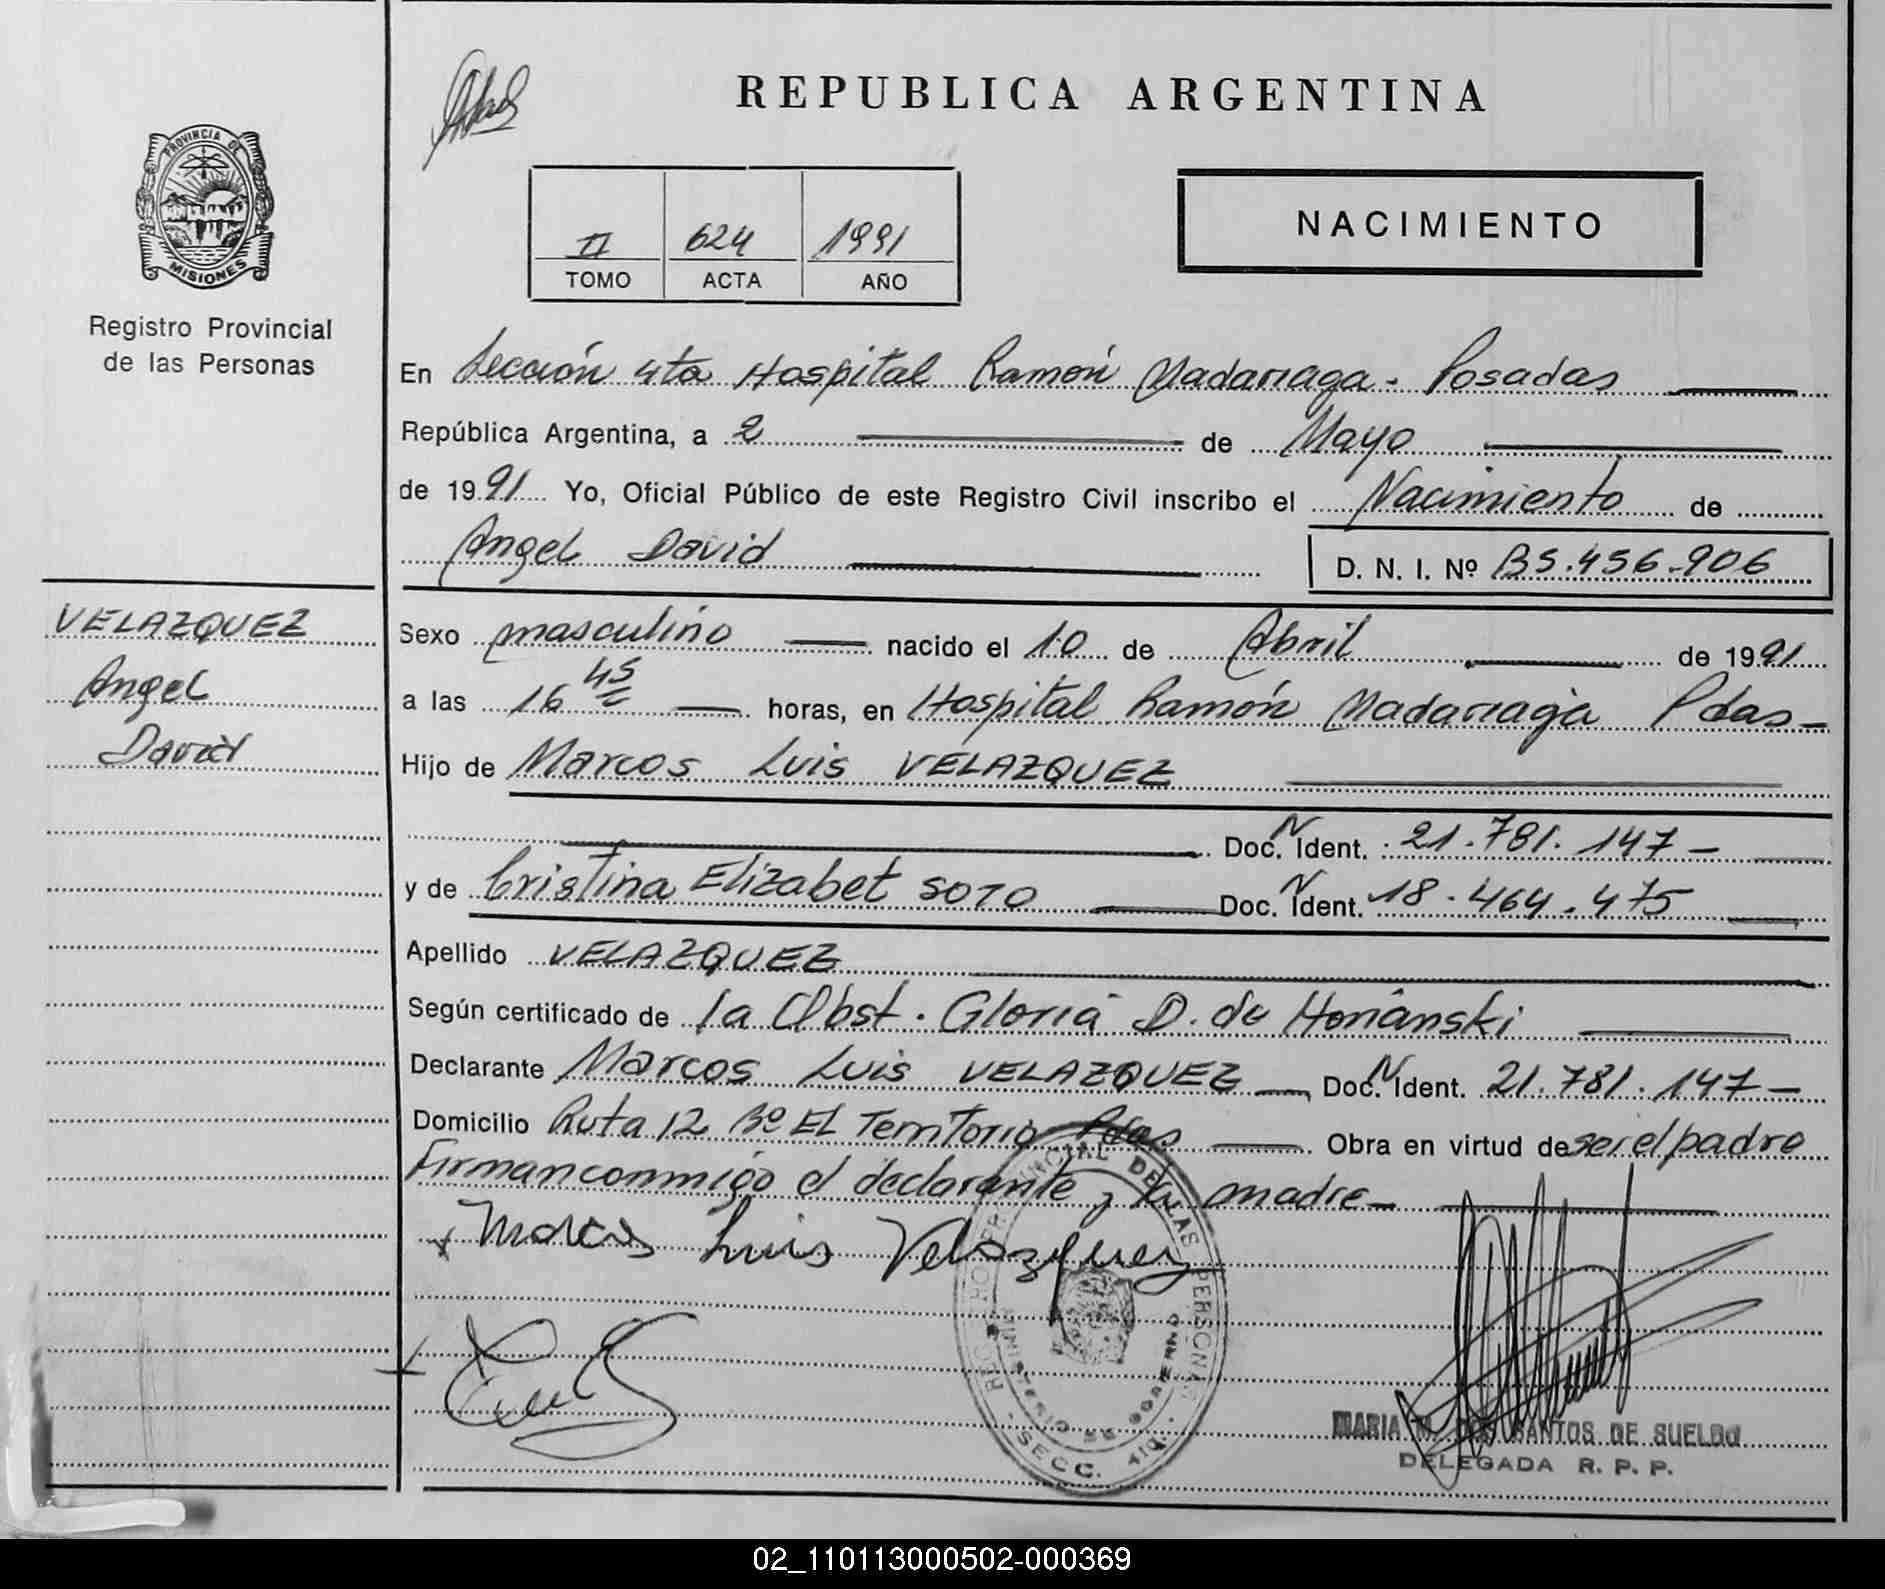 REPUBLICA ARGENTINA
PROVINCIA DE
MISIONES
Registro Provincial
de las Personas
II 624 1991
TOMO ACTA AÑO
NACIMIENTO
En Sección 4ta Hospital Ramón Madariaga - Posadas
República Argentina, a 2 de Mayo
de 1991 Yo, Oficial Público de este Registro Civil inscribo el Nacimiento de
Angel David D. N. I. Nº 35.456.906
VELAZQUEZ
Angel
David
Sexo masculino nacido el 10 de Abril de 1991
a las 16 45 horas, en Hospital Ramón Madariaga Pdas-
Hijo de Marcos Luis VELAZQUEZ
Doc. N Ident. 21.781.147-
y de Cristina Elizabet SOTO Doc. N Ident. 18.464.475
Apellido VELAZQUEZ
Según certificado de la Obst. Gloria D. de
Declarante Marcos Luis VELAZQUEZ Doc. N Ident. 21.781.147-
Domicilio Ruta 12 Bº EL Territorio Pdas Obra en virtud de ser el padre
Firman conmigo el declarante y la madre-
Marcos Luis Velazquez
REGISTRO PROVINCIAL DE LAS PERSONAS
MINISTERIO DE GOBIERNO
SECC. 4ta.
MARIA M. DOS SANTOS DE SUELDO
DELEGADA R. P. P.
02_110113000502-000369